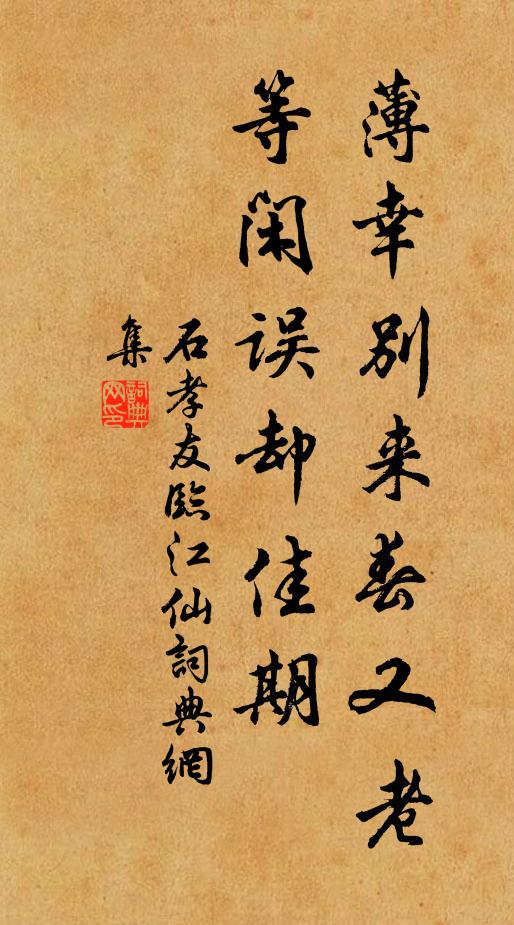 薄幸别来春又老
等闲误却佳期
石孝友臨江仙詞典網
集
詞典
网印